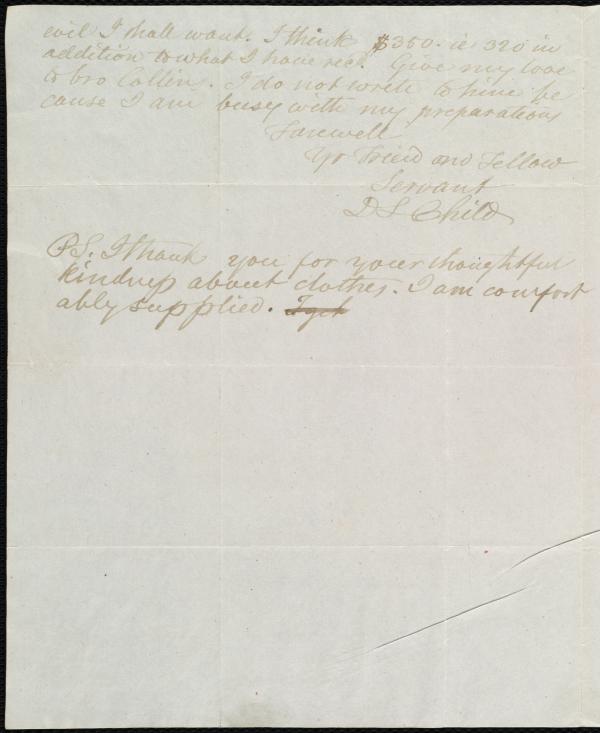 evil I shall want. I think $350. ie 320 in
addition to what I have recd. Give my love
to bro Collin. I do not write to him be
cause I am busy with my preparations
Farewell
Yr Friend and Fellow
Servant
D L Child
PS. I thank you for your thoughtful
kindness about clothes. I am comfort
ably supplied. I get